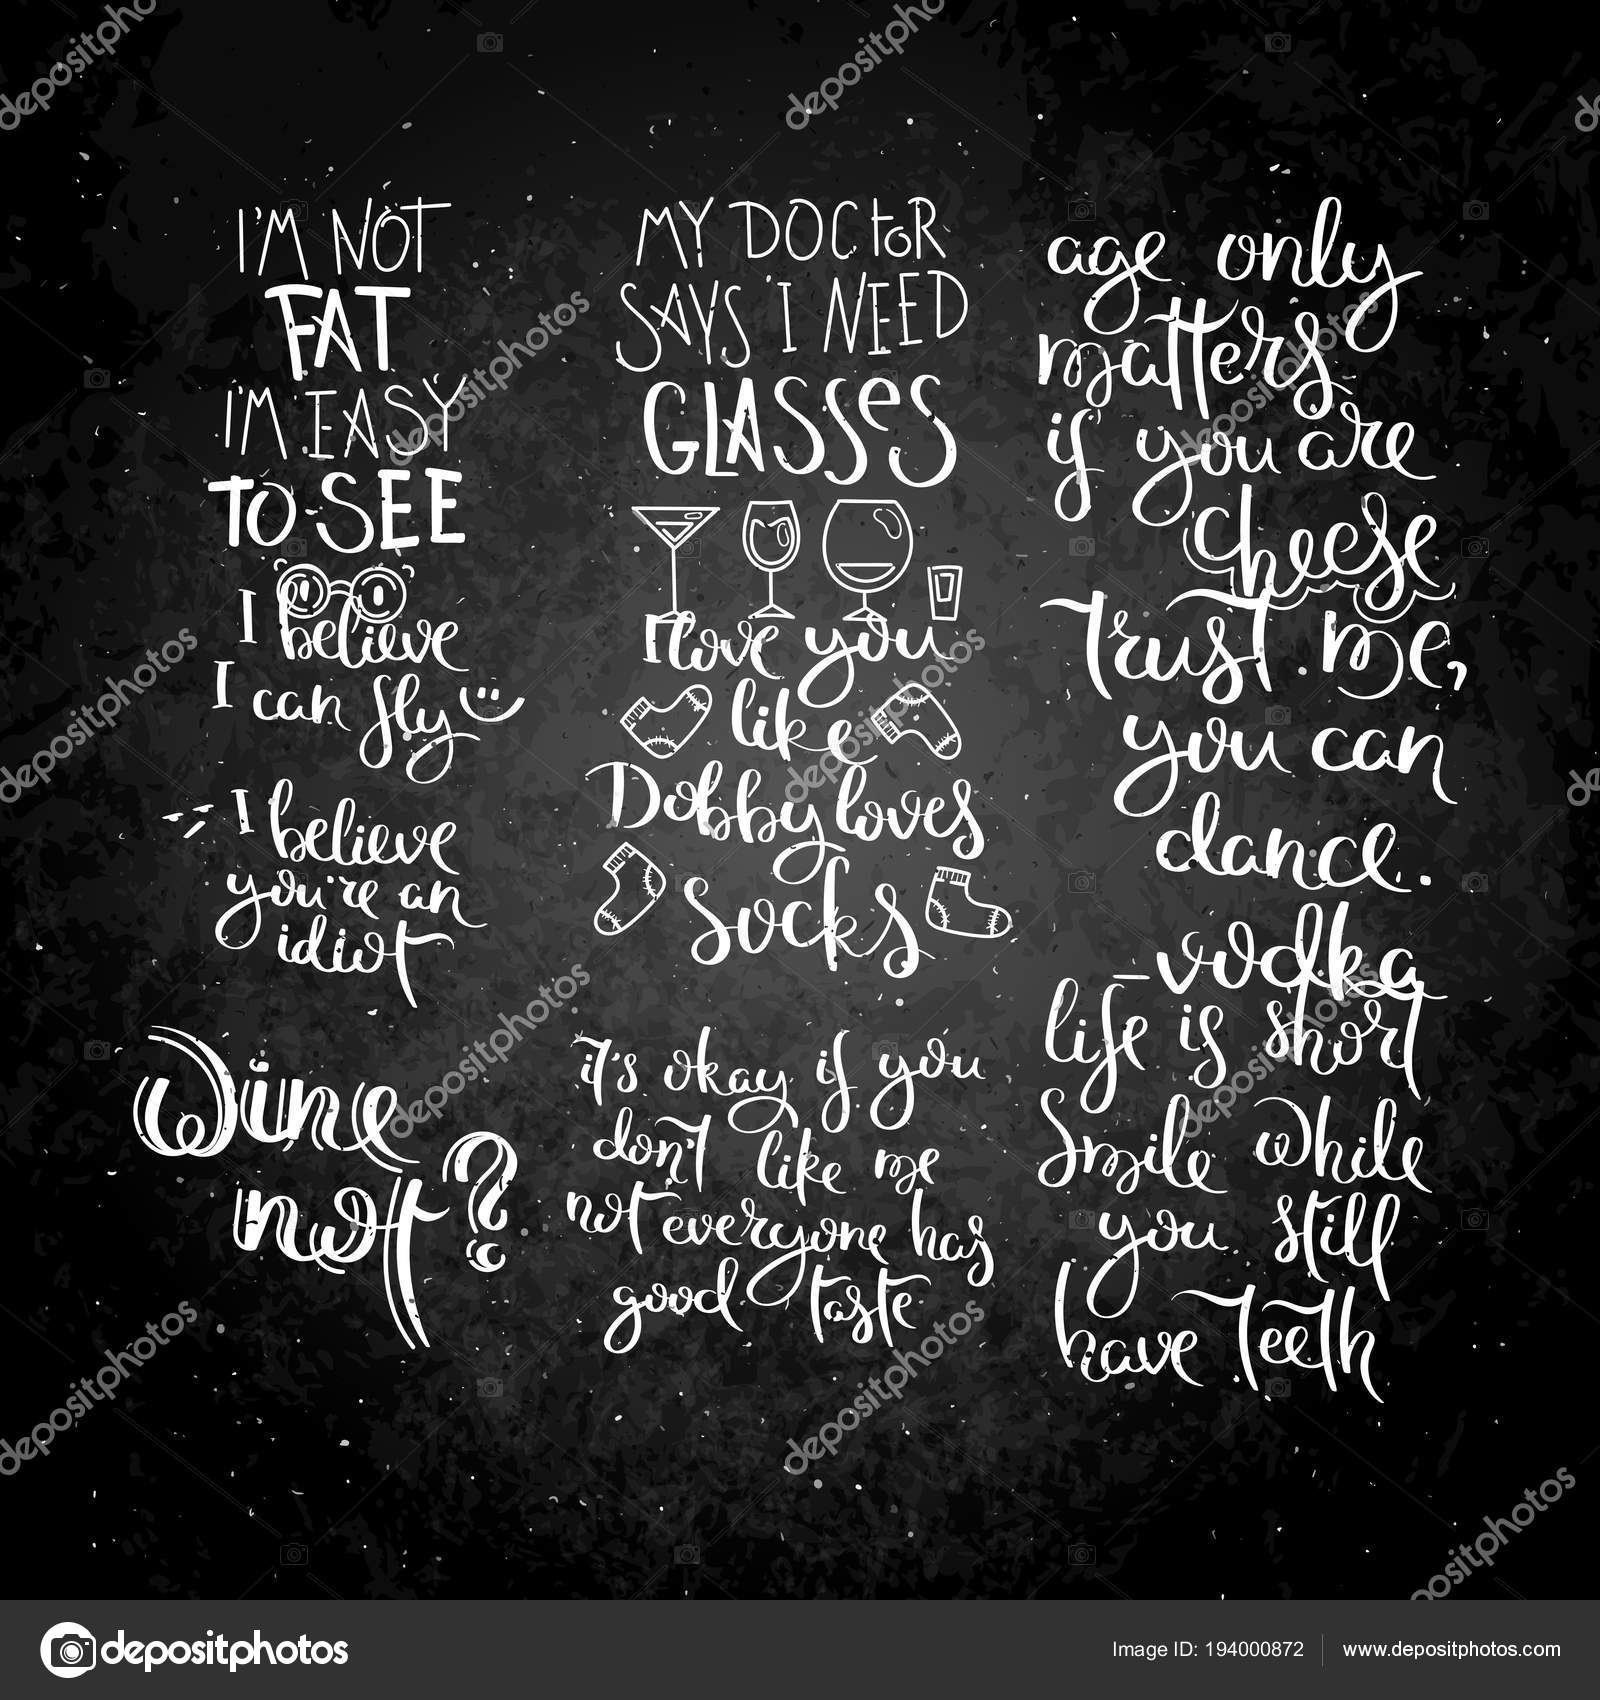 I'M NOT
FAT
I'M EASY
TO SEE
I believe
I can fly
I believe
you're an
idiot
Wine
not?
MY DOCTOR
SAYS I NEED
GLASSES
I love you
like
Dobby loves
socks
it's okay if you
don't like me
not everyone has
good taste
age only
matters
if you are
cheese
Trust me,
you can
dance.
-vodka
life is short
Smile while
you still
have teeth
depositphotos
Image ID: 194000872 www.depositphotos.com